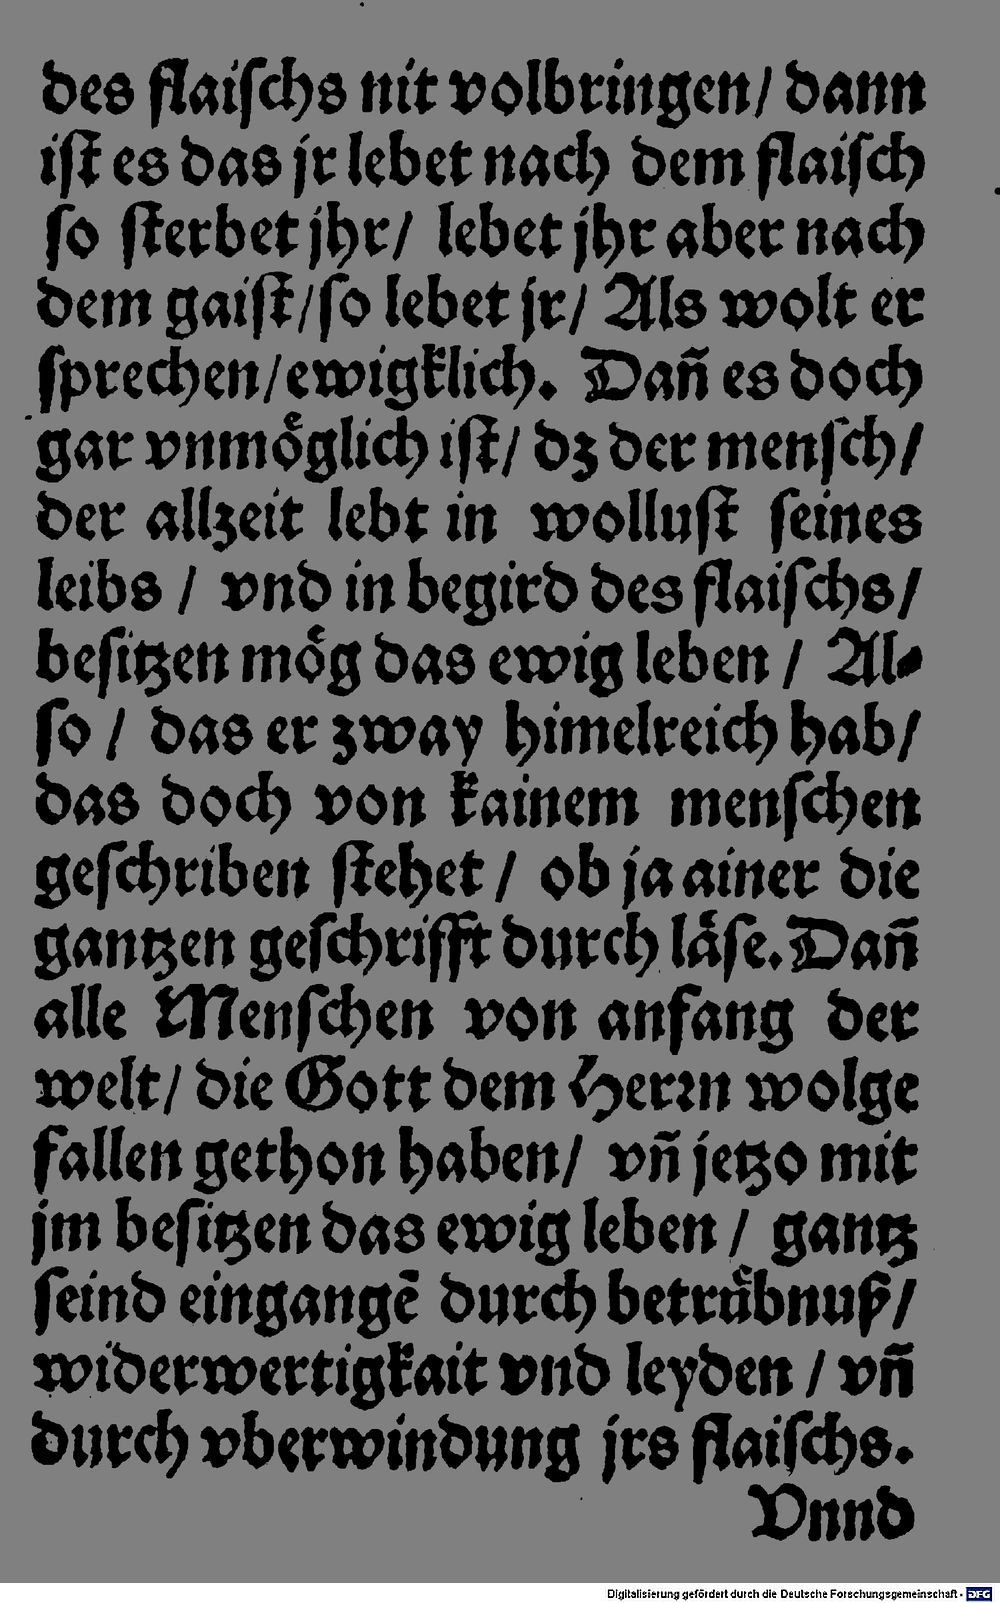 des flaiſchs nit volbringen/ dann
iſt es das jr lebet nach dem flaiſch
ſo ſterbet jhr/ lebet jhr aber nach
dem gaiſt/ſo lebet jr/ Als wolt er
ſprechen/ewigklich. Dañ es doch
gar vnmoͤglich iſt/ dz der menſch/
der allzeit lebt in wolluſt ſeines
leibs / vnd in begird des flaiſchs/
beſitzen moͤg das ewig leben / Al⸗
ſo / das er zway himelreich hab/
das doch von kainem menſchen
geſchriben ſtehet / ob ja ainer die
gantzen geſchrifft durch laͤſe. Dañ
alle Menſchen von anfang der
welt/ die Gott dem Herꝛn wolge
fallen gethon haben/ vñ jetzo mit
jm beſitzen das ewig leben / gantz
ſeind eingangē durch betruͤbnuß/
widerwertigkait vnd leyden / vñ
durch vberwindung jrs flaiſchs.
Vnnd
Digitalisierung gefördert durch die Deutsche Forschungsgemeinschaft - DFG